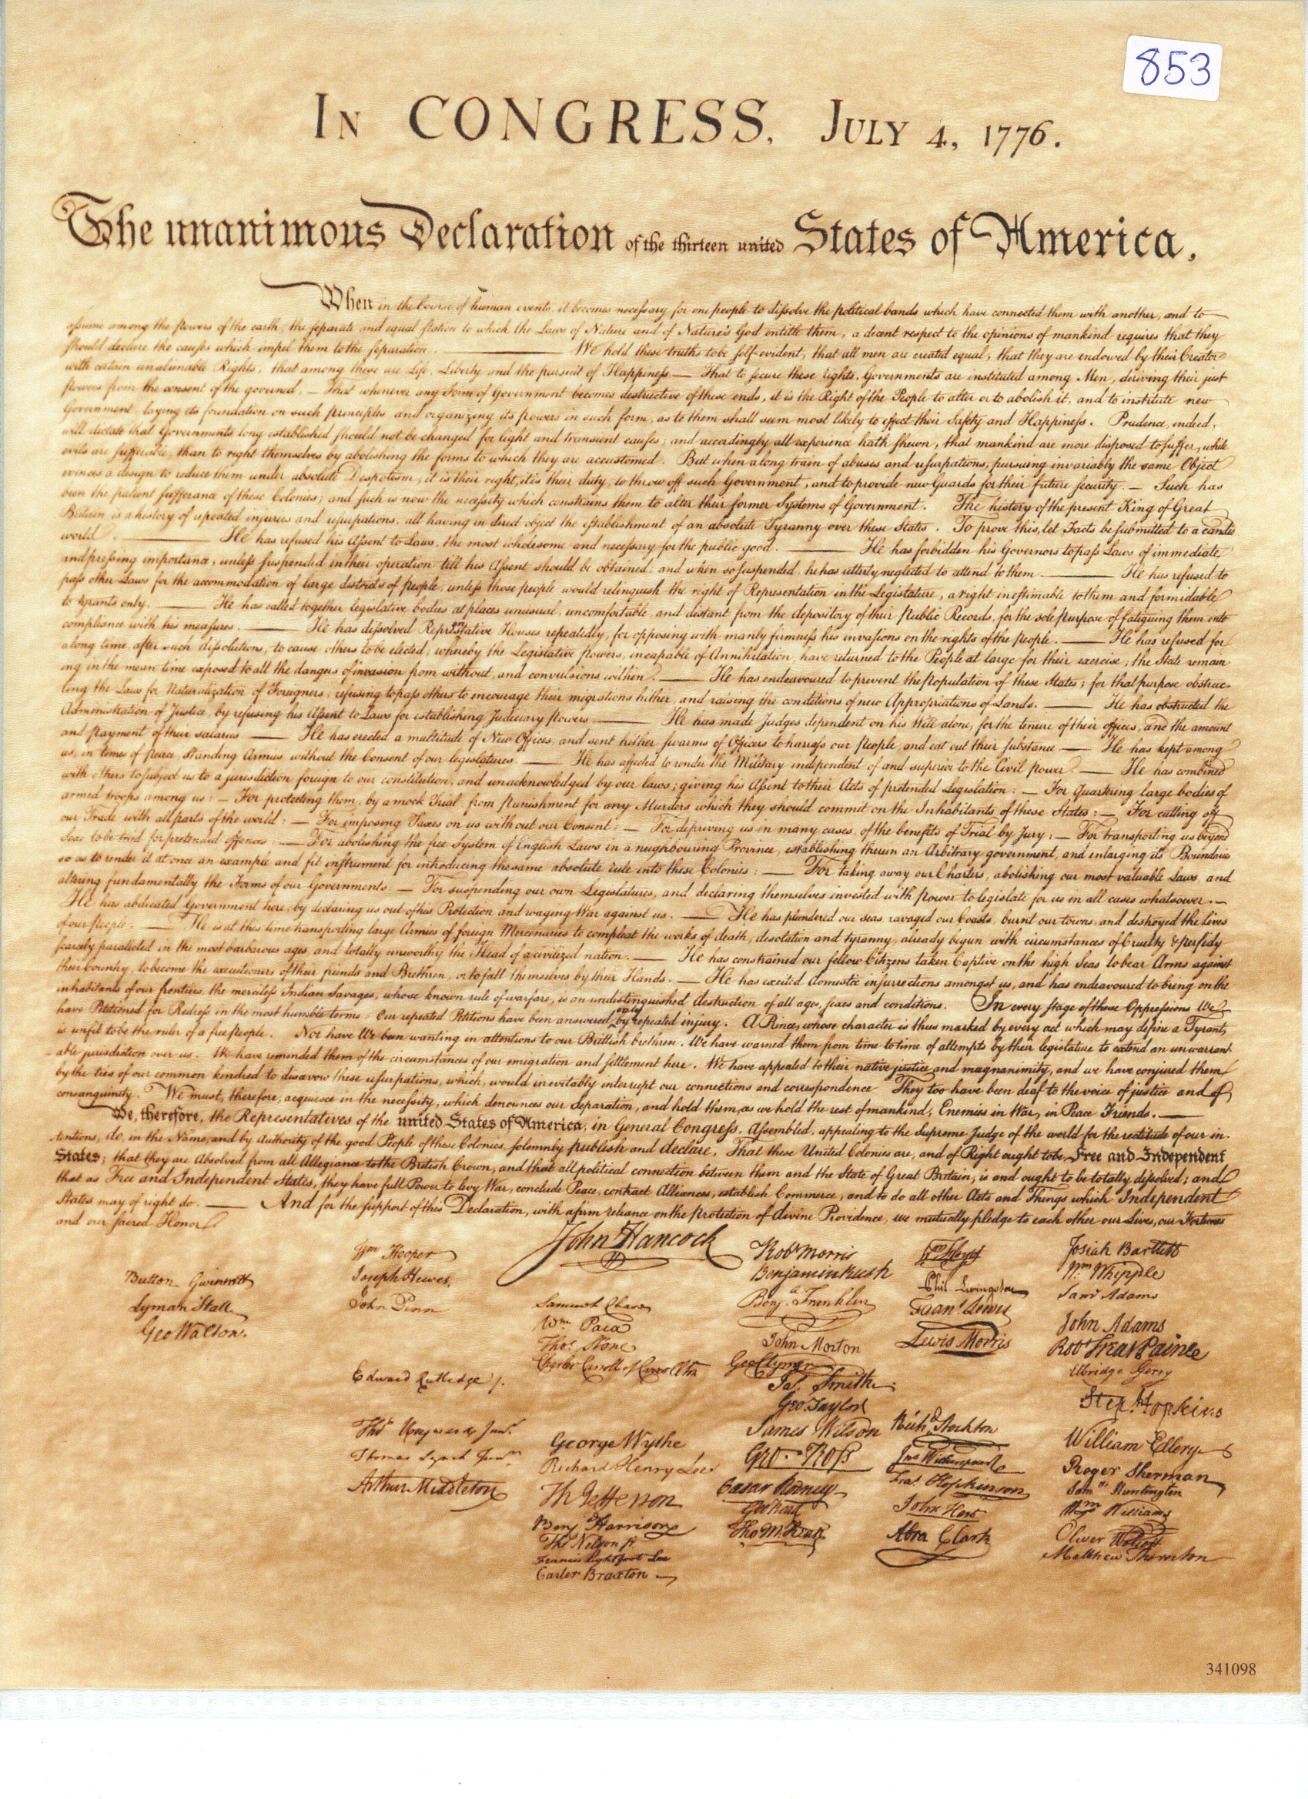 853
In CONGRESS, July 4, 1776.
The unanimous Declaration of the thirteen united States of America,
When in the Course of human events, it becomes necessary for one people to dissolve the political bands which have connected them with another, and to
assume among the powers of the earth, the separate and equal station to which the Laws of Nature and of Nature's God entitle them, a decent respect to the opinions of mankind requires that they
should declare the causes which impel them to the separation. — We hold these truths to be self-evident, that all men are created equal, that they are endowed by their Creator
with certain unalienable Rights, that among these are Life, Liberty and the pursuit of Happiness — That to secure these rights, Governments are instituted among Men, deriving their just
powers from the consent of the governed, — That whenever any Form of Government becomes destructive of these ends, it is the Right of the People to alter or to abolish it, and to institute new
Government, laying its foundation on such principles and organizing its powers in such form, as to them shall seem most likely to effect their Safety and Happiness. Prudence, indeed,
will dictate that Governments long established should not be changed for light and transient causes; and accordingly all experience hath shewn, that mankind are more disposed to suffer, while
evils are sufferable, than to right themselves by abolishing the forms to which they are accustomed. But when a long train of abuses and usurpations, pursuing invariably the same Object
evinces a design to reduce them under absolute Despotism, it is their right, it is their duty, to throw off such Government, and to provide new Guards for their future security. — Such has
been the patient sufferance of these Colonies; and such is now the necessity which constrains them to alter their former Systems of Government. The history of the present King of Great
Britain is a history of repeated injuries and usurpations, all having in direct object the establishment of an absolute Tyranny over these States. To prove this, let Facts be submitted to a candid
world. — He has refused his Assent to Laws, the most wholesome and necessary for the public good. — He has forbidden his Governors to pass Laws of immediate
and pressing importance, unless suspended in their operation till his Assent should be obtained; and when so suspended, he has utterly neglected to attend to them. — He has refused to
pass other Laws for the accommodation of large districts of people, unless those people would relinquish the right of Representation in the Legislature, a right inestimable to them and formidable
to tyrants only. — He has called together legislative bodies at places unusual, uncomfortable, and distant from the depository of their Public Records, for the sole purpose of fatiguing them into
compliance with his measures. — He has dissolved Representative Houses repeatedly, for opposing with manly firmness his invasions on the rights of the people. — He has refused for
a long time, after such dissolutions, to cause others to be elected; whereby the Legislative powers, incapable of Annihilation, have returned to the People at large for their exercise; the State remain
ing in the mean time exposed to all the dangers of invasion from without, and convulsions within. — He has endeavoured to prevent the population of these States; for that purpose obstruc
ting the Laws for Naturalization of Foreigners; refusing to pass others to encourage their migrations hither, and raising the conditions of new Appropriations of Lands. — He has obstructed the
Administration of Justice, by refusing his Assent to Laws for establishing Judiciary powers. — He has made Judges dependent on his Will alone, for the tenure of their offices, and the amount
and payment of their salaries. — He has erected a multitude of New Offices, and sent hither swarms of Officers to harrass our people, and eat out their substance. — He has kept among
us, in times of peace, Standing Armies without the Consent of our legislatures. — He has affected to render the Military independent of and superior to the Civil power. — He has combined
with others to subject us to a jurisdiction foreign to our constitution, and unacknowledged by our laws; giving his Assent to their Acts of pretended Legislation: — For Quartering large bodies of
armed troops among us: — For protecting them, by a mock Trial, from punishment for any Murders which they should commit on the Inhabitants of these States: — For cutting off
our Trade with all parts of the world: — For imposing Taxes on us without our Consent: — For depriving us in many cases, of the benefits of Trial by Jury: — For transporting us beyond
Seas to be tried for pretended offences: — For abolishing the free System of English Laws in a neighbouring Province, establishing therein an Arbitrary government, and enlarging its Boundaries
so as to render it at once an example and fit instrument for introducing the same absolute rule into these Colonies: — For taking away our Charters, abolishing our most valuable Laws, and
altering fundamentally the Forms of our Governments: — For suspending our own Legislatures, and declaring themselves invested with power to legislate for us in all cases whatsoever. —
He has abdicated Government here, by declaring us out of his Protection and waging War against us. — He has plundered our seas, ravaged our Coasts, burnt our towns, and destroyed the lives
of our people. — He is at this time transporting large Armies of foreign Mercenaries to compleat the works of death, desolation and tyranny, already begun with circumstances of Cruelty & perfidy
scarcely paralleled in the most barbarous ages, and totally unworthy the Head of a civilized nation. — He has constrained our fellow Citizens taken Captive on the high Seas to bear Arms against
their Country, to become the executioners of their friends and Brethren, or to fall themselves by their Hands. — He has excited domestic insurrections amongst us, and has endeavoured to bring on the
inhabitants of our frontiers, the merciless Indian Savages, whose known rule of warfare, is an undistinguished destruction of all ages, sexes and conditions. In every stage of these Oppressions We
have Petitioned for Redress in the most humble terms: Our repeated Petitions have been answered only by repeated injury. A Prince, whose character is thus marked by every act which may define a Tyrant,
is unfit to be the ruler of a free people. Nor have We been wanting in attentions to our Brittish brethren. We have warned them from time to time of attempts by their legislature to extend an unwarrant
able jurisdiction over us. We have reminded them of the circumstances of our emigration and settlement here. We have appealed to their native justice and magnanimity, and we have conjured them
by the ties of our common kindred to disavow these usurpations, which, would inevitably interrupt our connections and correspondence. They too have been deaf to the voice of justice and of
consanguinity. We must, therefore, acquiesce in the necessity, which denounces our Separation, and hold them, as we hold the rest of mankind, Enemies in War, in Peace Friends. —
We, therefore, the Representatives of the united States of America, in General Congress, Assembled, appealing to the Supreme Judge of the world for the rectitude of our in
tentions, do, in the Name, and by Authority of the good People of these Colonies, solemnly publish and declare, That these United Colonies are, and of Right ought to be Free and Independent
States; that they are Absolved from all Allegiance to the British Crown, and that all political connection between them and the State of Great Britain, is and ought to be totally dissolved; and
that as Free and Independent States, they have full Power to levy War, conclude Peace, contract Alliances, establish Commerce, and to do all other Acts and Things which Independent
States may of right do. — And for the support of this Declaration, with a firm reliance on the protection of divine Providence, we mutually pledge to each other our Lives, our Fortunes
and our sacred Honor.
Button Gwinnett
Lyman Hall
Geo Walton.
Wm Hooper
Joseph Hewes,
John Penn
Edward Rutledge /.
Thos Heyward Junr.
Thomas Lynch Junr.
Arthur Middleton
John Hancock
Samuel Chase
Wm. Paca
Thos. Stone
Charles Carroll of Carrollton
George Wythe
Richard Henry Lee
Th Jefferson
Benj Harrison
Thos Nelson jr.
Francis Lightfoot Lee
Carter Braxton
Robt Morris
Benjamin Rush
Benja. Franklin
John Morton
Geo Clymer
Jas. Smith
Geo. Taylor
James Wilson
Geo. Ross
Caesar Rodney
Geo Read
Tho M:Kean
Phil. Livingston
Frans. Lewis
Lewis Morris
Richd. Stockton
Jno Witherspoon
Fras. Hopkinson
John Hart
Abra Clark
Josiah Bartlett
Wm. Whipple
Saml Adams
John Adams
Robt Treat Paine
Elbridge Gerry
Step. Hopkins
William Ellery
Roger Sherman
Saml. Huntington
Wm. Williams
Oliver Wolcott
Matthew Thornton
341098